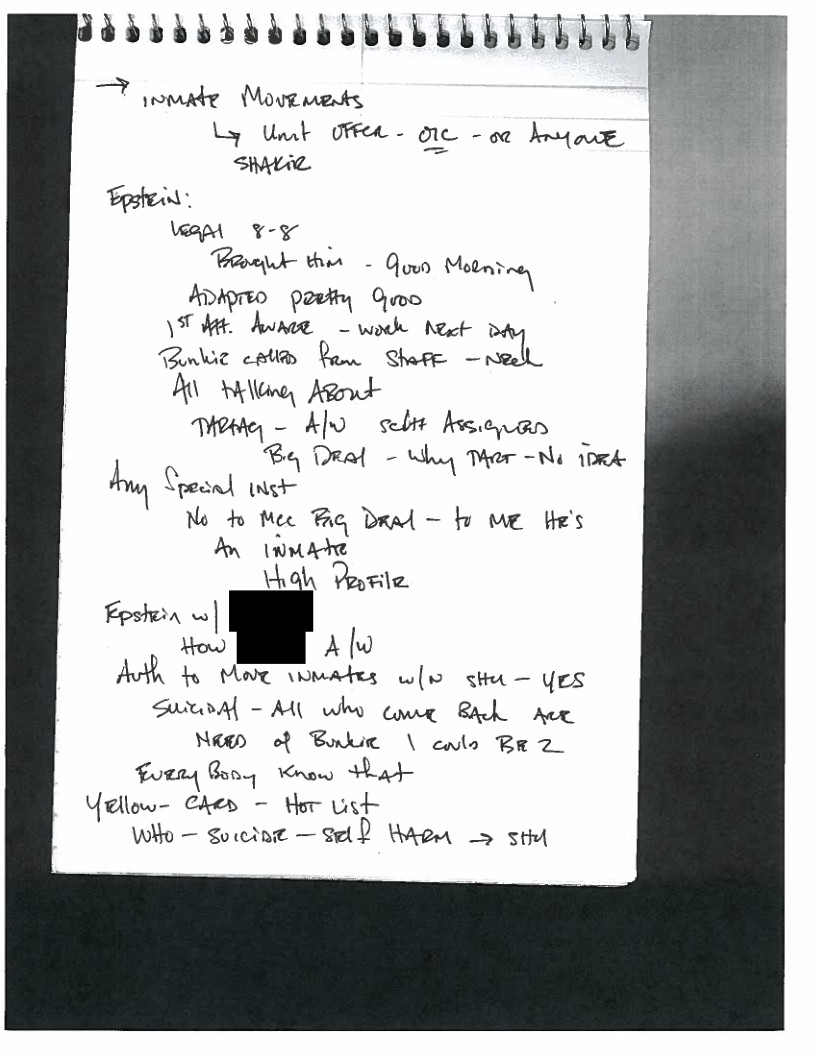 → INMATE MOVEMENTS
↳ Unit OFFCR - OIC - OR ANYONE
SHAKIR
Epstein:
LEGAL 8-8
BROUGHT HIM - GOOD MORNING
ADAPTED PRETTY GOOD
1ST Att. AWARE - WORK NEXT DAY
Bunkie CALLED from STAFF - Neck
All tALKing ABOUT
TARTAG - A/W ASSIGNED
Big DEAL - Why TART - No IDEA
Any Special INST
No to MCC BIG DEAL - to ME HE'S
An INMATE
High PROFILE
Epstein w/
HOW A/W
Auth to MOVE INMATES w/N SHU - YES
SUICIDAL - All who come BACK ARE
NEED of Bunkie \ could BE 2
EVERY BODY KNOW thAT
YEllow - CARD - HOT LIST
WHO - SUICIDE - SELF HARM → SHU